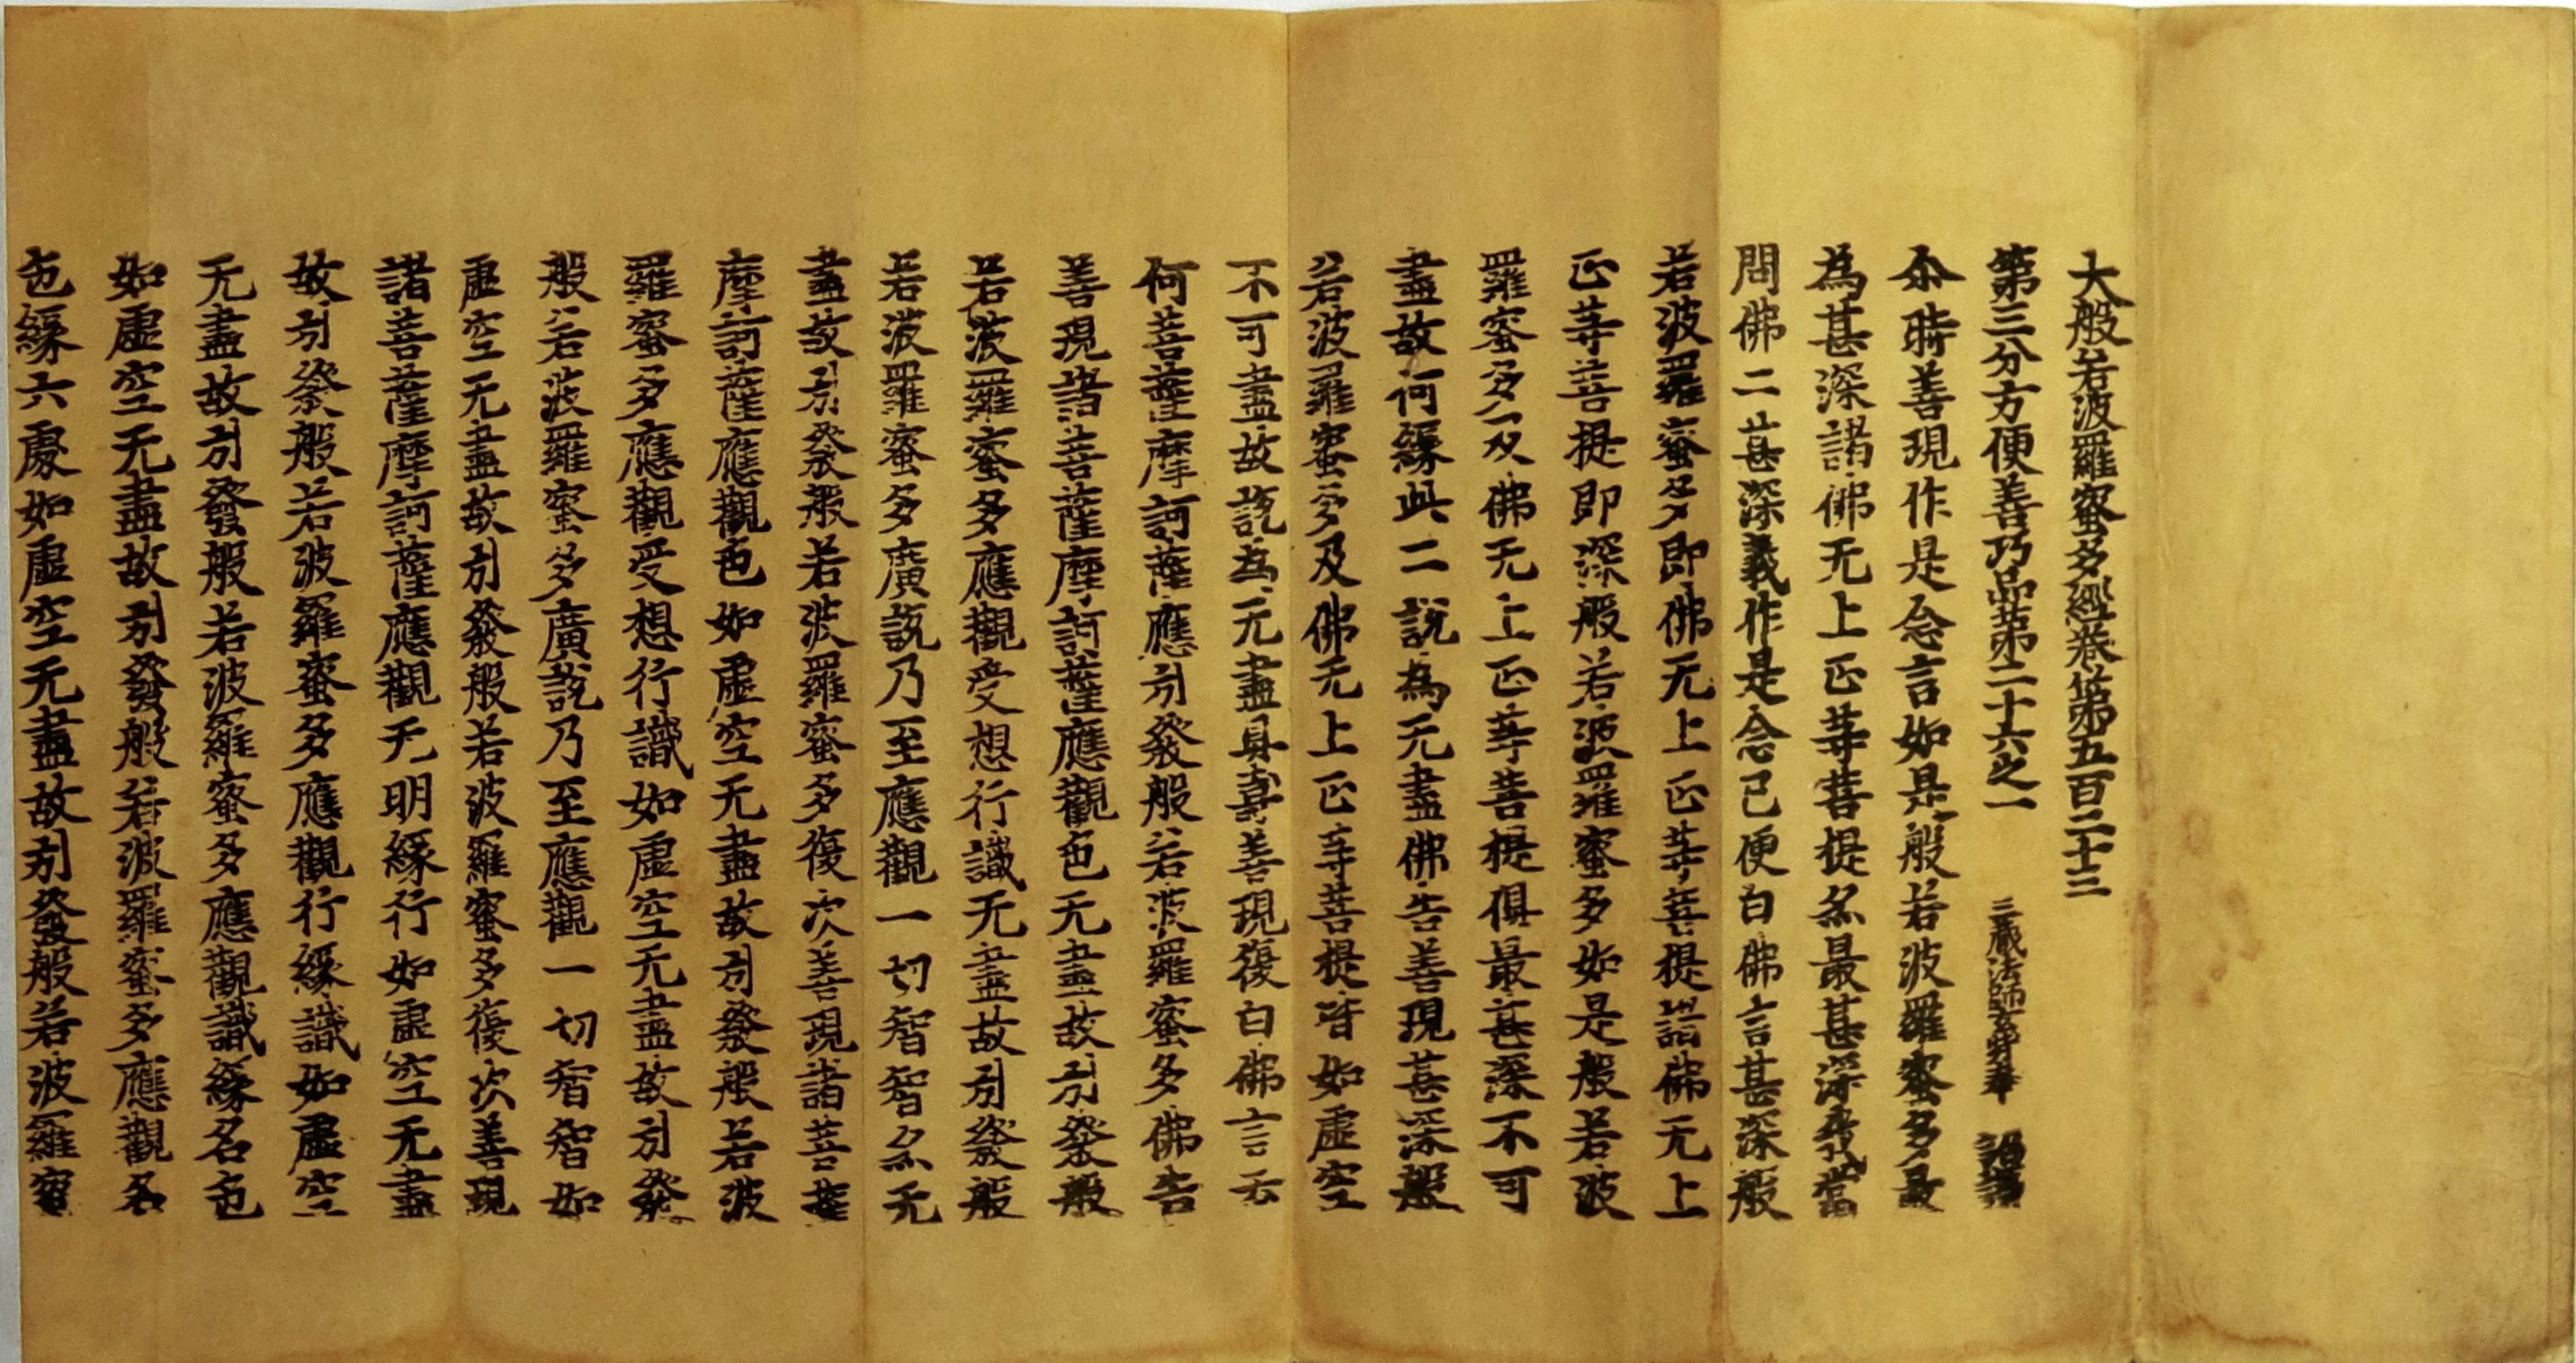 大般若波羅蜜多經卷第五百二十三
第三分方便善巧品第二十六之一　三藏法師玄奘奉　詔譯
尒時善現作是念言如是般若波羅蜜多最
為甚深諸佛无上正等菩提亦最甚深我當
問佛二甚深義作是念已便白佛言甚深般
若波羅蜜多即佛无上正等菩提諸佛无上
正等菩提即深般若波羅蜜多如是般若波
羅蜜多及佛无上正等菩提俱最甚深不可
盡故何緣此二說為无盡佛告善現甚深般
若波羅蜜多及佛无上正等菩提皆如虛空
不可盡故說為无盡具壽善現復白佛言云
何菩薩摩訶薩應引發般若波羅蜜多佛告
善現諸菩薩摩訶薩應觀色无盡故引發般
若波羅蜜多應觀受想行識无盡故引發般
若波羅蜜多廣說乃至應觀一切智智亦无
盡故引發般若波羅蜜多復次善現諸菩薩
摩訶薩應觀色如虛空无盡故引發般若波
羅蜜多應觀受想行識如虛空无盡故引發
般若波羅蜜多廣說乃至應觀一切智智如
虛空无盡故引發般若波羅蜜多復次善現
諸菩薩摩訶薩應觀无明緣行如虛空无盡
故引發般若波羅蜜多應觀行緣識如虛空
无盡故引發般若波羅蜜多應觀識緣名色
如虛空无盡故引發般若波羅蜜多應觀名
色緣六處如虛空无盡故引發般若波羅蜜